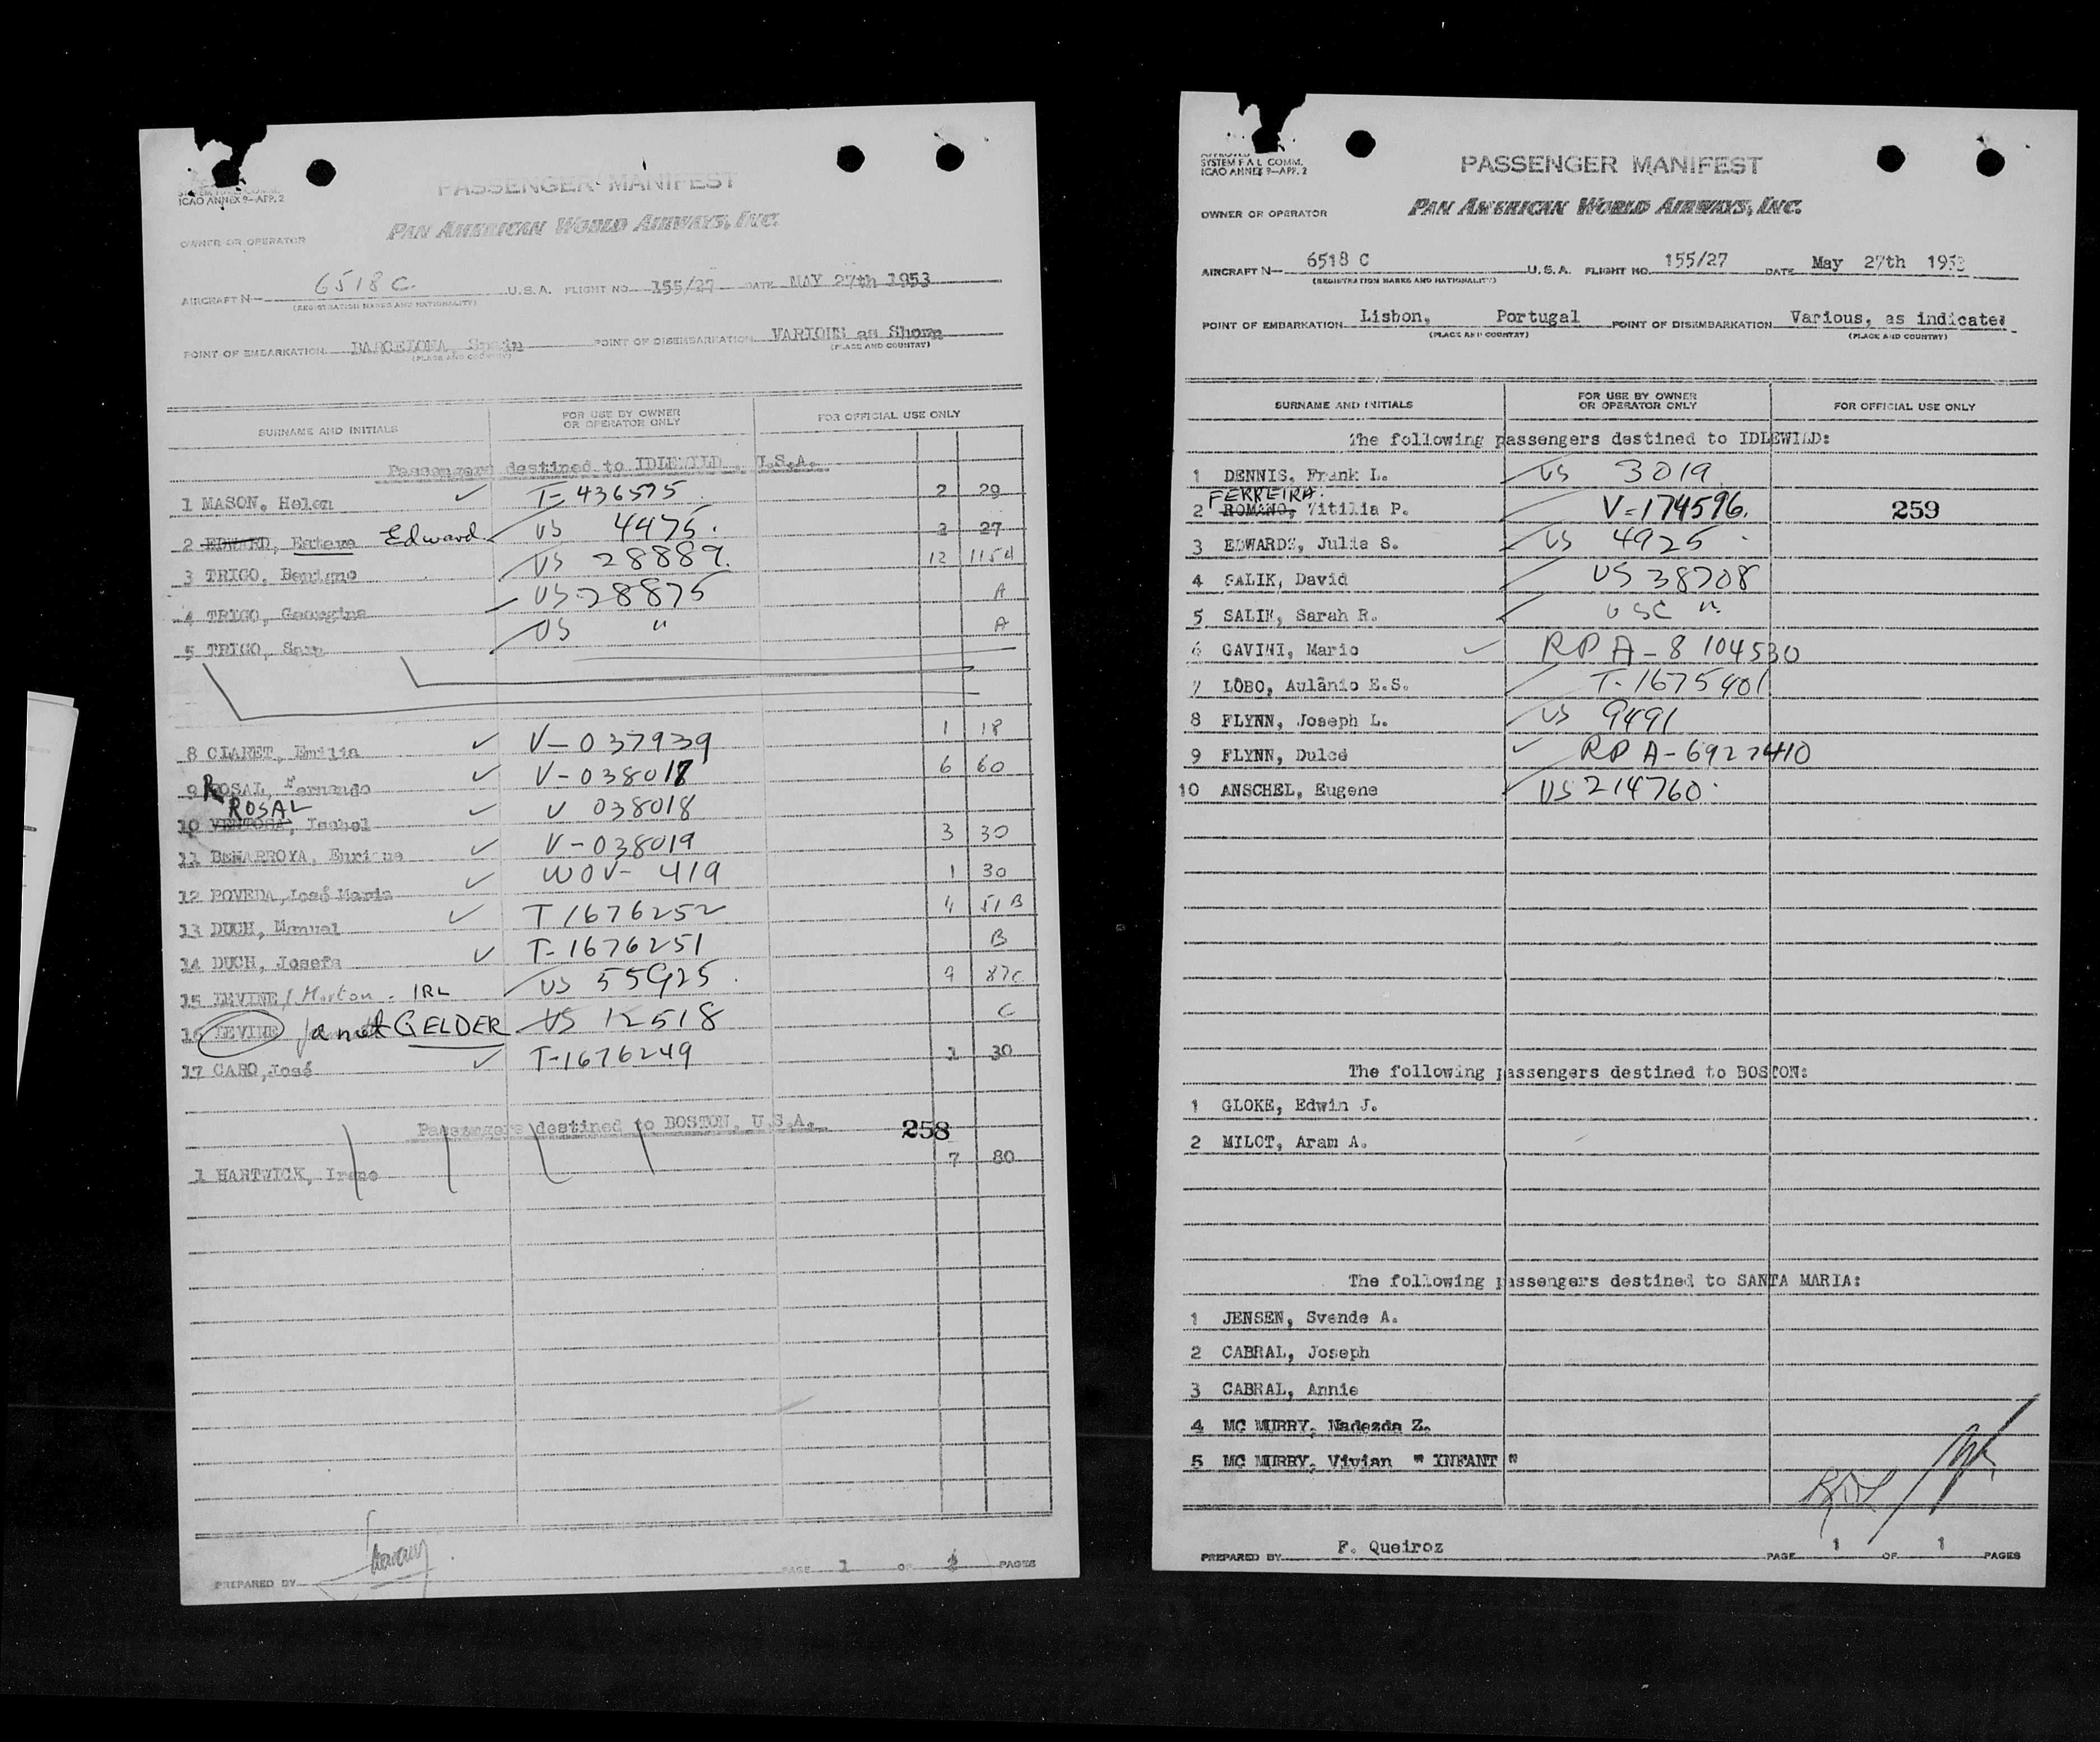 SYSTEM F A L COMM.
ICAO ANNEX 9—APP. 2
PASSENGER MANIFEST
PAN AMERICAN WORLD AIRWAYS, INC.
OWNER OR OPERATOR
AIRCRAFT N— 6518 C U.S.A. FLIGHT NO. 155/27 DATE MAY 27th 1953
(REGISTRATION MARKS AND NATIONALITY)
POINT OF EMBARKATION BARCELONA, Spain POINT OF DISEMBARKATION VARIOUS as Shown
(PLACE AND COUNTRY) (PLACE AND COUNTRY)
SURNAME AND INITIALS FOR USE BY OWNER OR OPERATOR ONLY FOR OFFICIAL USE ONLY
Passengers destined to IDLEWILD, U.S.A.
1 MASON, Helen T-436575 2 29
2 EDWARD, Esteve Edward US 4475. 2 27
3 TRIGO, Benigno US 28889. 12 115A
4 TRIGO, Georgina US-28875 A
5 TRIGO, Sara US " A
8 CLARET, Emilia V-037939 1 18
9 ROSAL, Fernando V-038017 6 60
ROSAL
10 VENTOSA, Isabel V 038018
11 BENARROYA, Enrique V-038019 3 30
12 POVEDA, José Maria WOV- 419 1 30
13 DUCH, Manuel T 1676252 4 51B
14 DUCH, Josefa T-1676251 B
15 LEVINE / Morton. IRL US 55925. 9 87C
16 LEVINE Janet GELDER US 12518 C
17 CARO, José T-1676249 3 30
Passengers destined to BOSTON, U.S.A. 258
1 HARTWICK, Irene 7 80
PREPARED BY PAGE 1 OF 1 PAGES
APPROVED
SYSTEM F A L COMM.
ICAO ANNEX 9—APP. 2
PASSENGER MANIFEST
PAN AMERICAN WORLD AIRWAYS, INC.
OWNER OR OPERATOR
AIRCRAFT N— 6518 C U.S.A. FLIGHT NO. 155/27 DATE May 27th 1953
(REGISTRATION MARKS AND NATIONALITY)
POINT OF EMBARKATION Lisbon, Portugal POINT OF DISEMBARKATION Various, as indicated
(PLACE AND COUNTRY) (PLACE AND COUNTRY)
SURNAME AND INITIALS FOR USE BY OWNER OR OPERATOR ONLY FOR OFFICIAL USE ONLY
The following passengers destined to IDLEWILD:
1 DENNIS, Frank L. US 3019
FERREIRA.
2 ROMANO, Vitilia P. V-174596. 259
3 EDWARDS, Julia S. US 4925
4 SALIK, David US 38708
5 SALIK, Sarah R. USC "
6 GAVINI, Mario RP A-8 104530
7 LÔBO, Aulânio E.S. T-1675401
8 FLYNN, Joseph L. US 9491
9 FLYNN, Dulcé RP A-6927410
10 ANSCHEL, Eugene US 214760.
The following passengers destined to BOSTON:
1 GLOKE, Edwin J.
2 MILOT, Aram A.
The following passengers destined to SANTA MARIA:
1 JENSEN, Svende A.
2 CABRAL, Joseph
3 CABRAL, Annie
4 MC MURRY, Nadezda Z.
5 MC MURRY, Vivian " INFANT "
PREPARED BY F. Queiroz PAGE 1 OF 1 PAGES